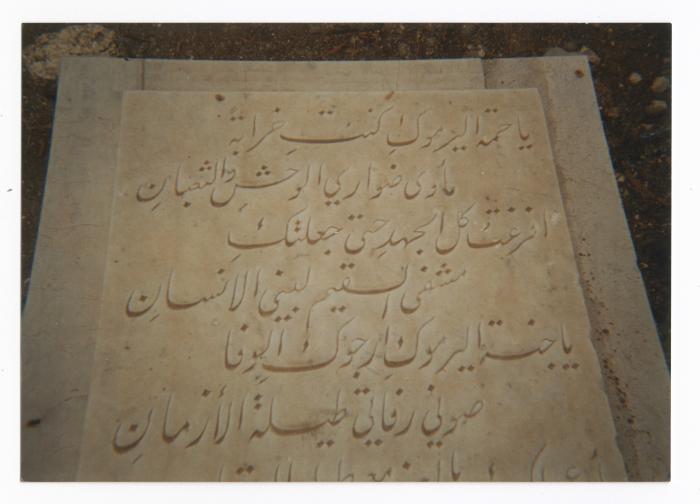 يا حمة اليرموك كنتِ خرابةً
مأوى ضواري الوحشِ والثعبانِ
افرغتُ كل الجهدِ حتى جعلتكِ
مشفى السقيم لبني الانسانِ
يا جنة اليرموك ارجوكِ الوفا
صوني رفاتي طيلة الأزمانِ